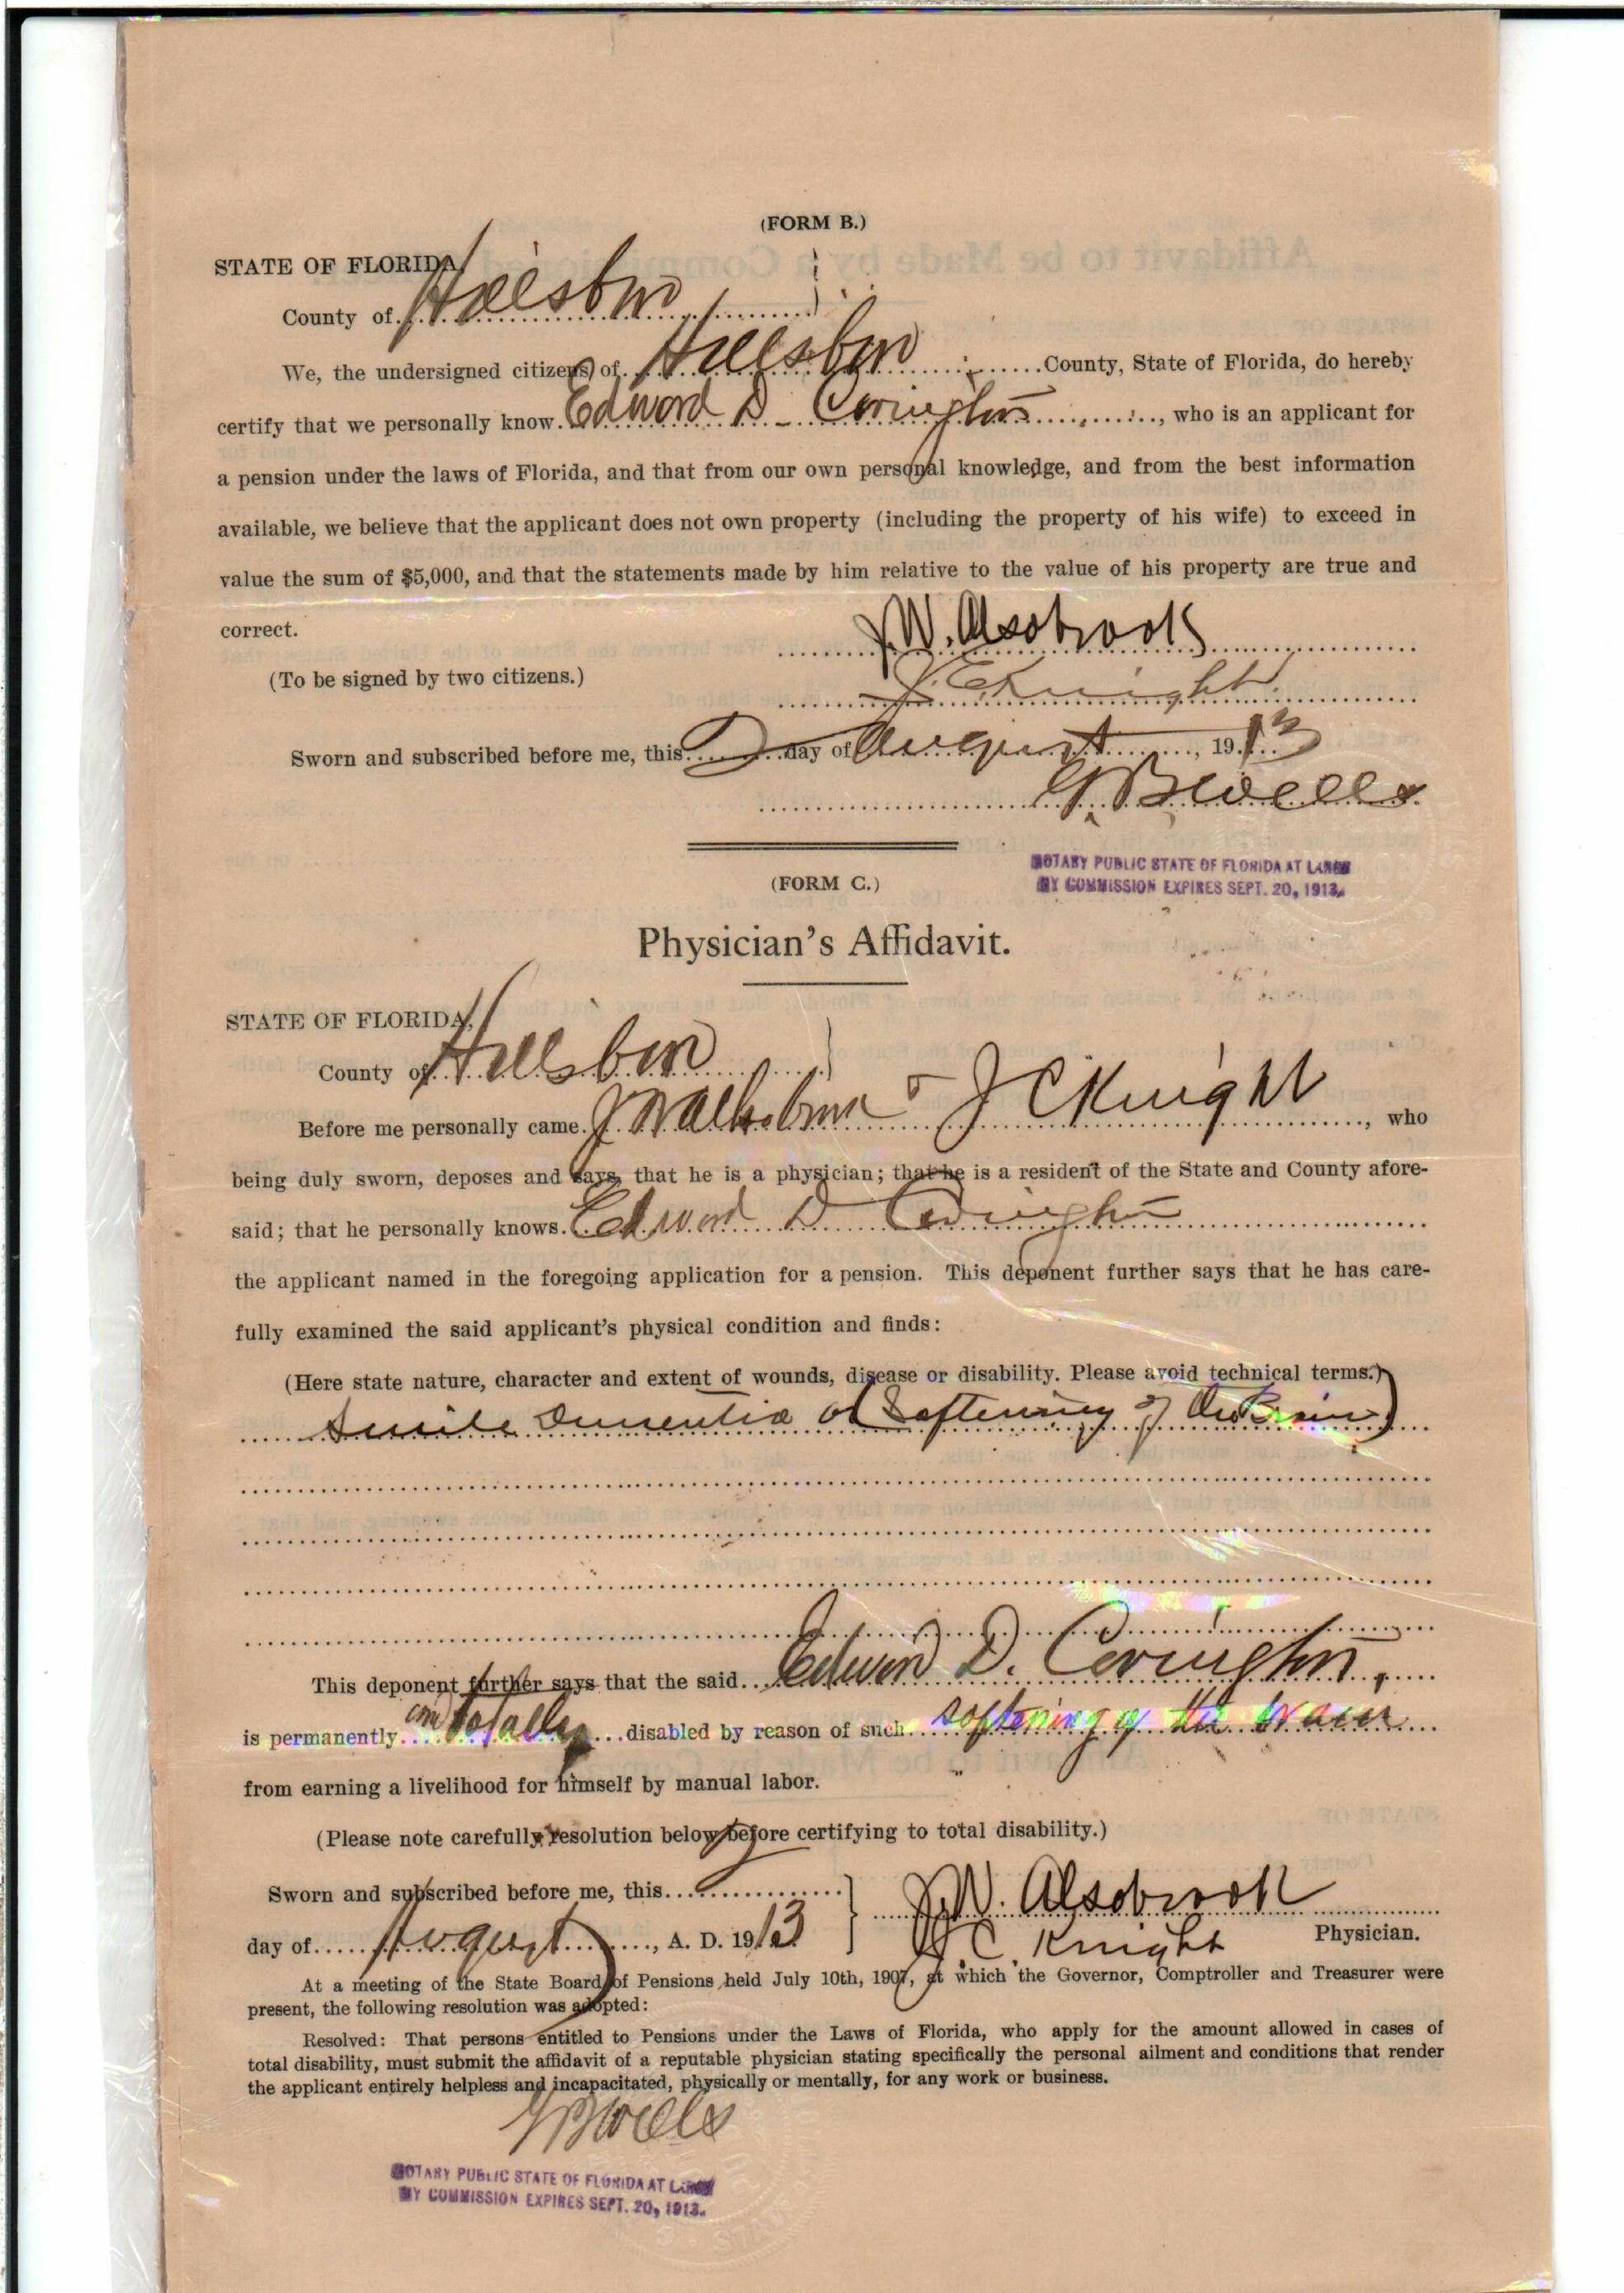 (FORM B.)
STATE OF FLORIDA,
County of Hillsboro
We, the undersigned citizens of Hillsboro County, State of Florida, do hereby
certify that we personally know Edword D Covington, who is an applicant for
a pension under the laws of Florida, and that from our own personal knowledge, and from the best information
available, we believe that the applicant does not own property (including the property of his wife) to exceed in
value the sum of $5,000, and that the statements made by him relative to the value of his property are true and
correct.
J.W. Alsobrook
(To be signed by two citizens.)
J. C. Knight
Sworn and subscribed before me, this 2 day of August, 1913
G. B Wells
NOTARY PUBLIC STATE OF FLORIDA AT LARGE
MY COMMISSION EXPIRES SEPT. 20, 1913.
(FORM C.)
Physician's Affidavit.
STATE OF FLORIDA,
County of Hillsboro
Before me personally came J W Alsobrook & J C Knight, who
being duly sworn, deposes and says, that he is a physician; that he is a resident of the State and County afore-
said; that he personally knows Edword D Covington
the applicant named in the foregoing application for a pension. This deponent further says that he has care-
fully examined the said applicant's physical condition and finds:
(Here state nature, character and extent of wounds, disease or disability. Please avoid technical terms.)
Senile Dementia or (Softening of the Brain)
This deponent further says that the said Edward D. Covington,
is permanently and totally disabled by reason of such softening of the brain
from earning a livelihood for himself by manual labor.
(Please note carefully resolution below before certifying to total disability.)
Sworn and subscribed before me, this 2
J.W. Alsobrook
day of August, A. D. 1913
J. C. Knight Physician.
At a meeting of the State Board of Pensions held July 10th, 1907, at which the Governor, Comptroller and Treasurer were
present, the following resolution was adopted:
Resolved: That persons entitled to Pensions under the Laws of Florida, who apply for the amount allowed in cases of
total disability, must submit the affidavit of a reputable physician stating specifically the personal ailment and conditions that render
the applicant entirely helpless and incapacitated, physically or mentally, for any work or business.
G B Wells
NOTARY PUBLIC STATE OF FLORIDA AT LARGE
MY COMMISSION EXPIRES SEPT. 20, 1913.